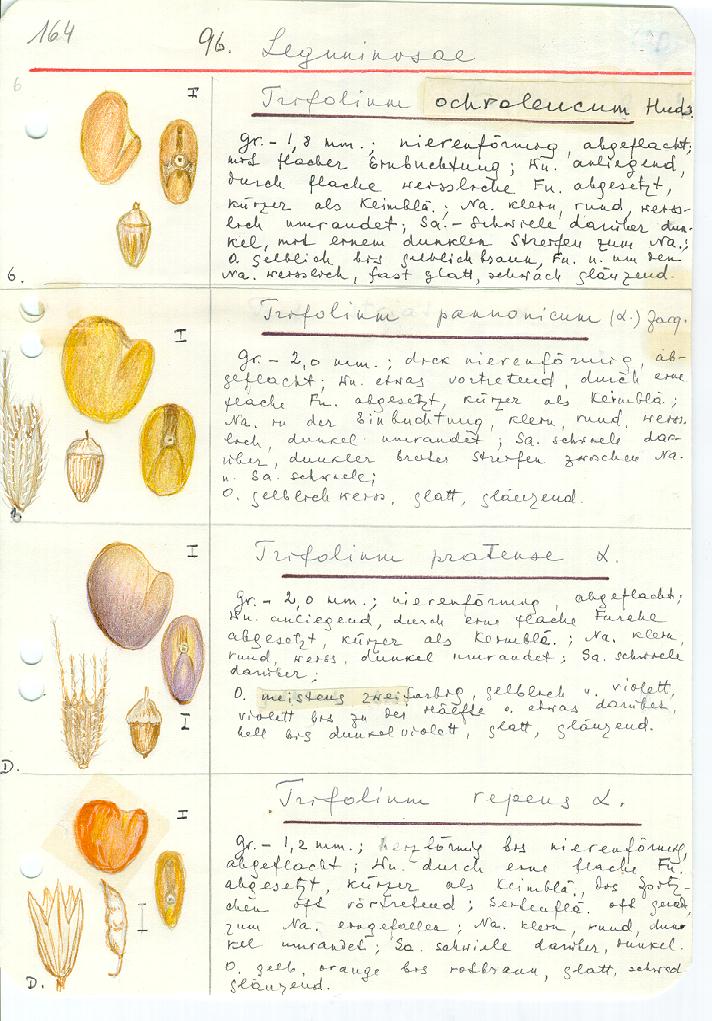 164
96. Leguminosae
Trifolium ochroleucum Huds.
Gr.- 1,8 mm.; nierenförmig, abgeflacht;
mit flacher Einbuchtung; Wu. anliegend,
durch flache weissliche Fu. abgesetzt,
kürzer als Keimblä.; Na. klein, rund, weiss-
lich umrandet; Sa.-Schwiele darüber dun-
kel, mit einem dunklen Streifen zum Na.;
O. gelblich bis gelblichbraun, Fu. u. um den
Na. weisslich, fast glatt, schwach glänzend.
6.
Trifolium pannonicum (L.) Jacq.
Gr.- 2,0 mm.; dick nierenförmig, ab-
geflacht; Wu. etwas vortretend, durch eine
flache Fu. abgesetzt, kürzer als Keimblä.;
Na. in der Einbuchtung, klein, rund, weiss-
lich, dunkel umrandet; Sa. schwiele dar-
über, dunkler breiter Streifen zwischen Na.
u. Sa. schwiele;
O. gelblichweiss, glatt, glänzend.
Trifolium pratense L.
Gr.- 2,0 mm.; nierenförmig, abgeflacht;
Wu. anliegend, durch eine flache Furche
abgesetzt, kürzer als Keimblä.; Na. klein,
rund, weiss, dunkel umrandet; Sa. schwiele
darüber;
O. meistens zweifarbig, gelblich u. violett,
violett bis zu der Hälfte o. etwas darüber,
hell bis dunkelviolett, glatt, glänzend.
D.
Trifolium repens L.
Gr.- 1,2 mm.; herzförmig bis nierenförmig,
abgeflacht; Wu. durch eine flache Fu.
abgesetzt, kürzer als Keimblä., das Spitz-
chen oft vortretend; Seitenflä. oft gerade,
zum Na. eingefallen; Na. klein, rund, dun-
kel umrandet; Sa. schwiele darüber, dunkel.
O. gelb, orange bis rotbraun, glatt,
glänzend.
D.